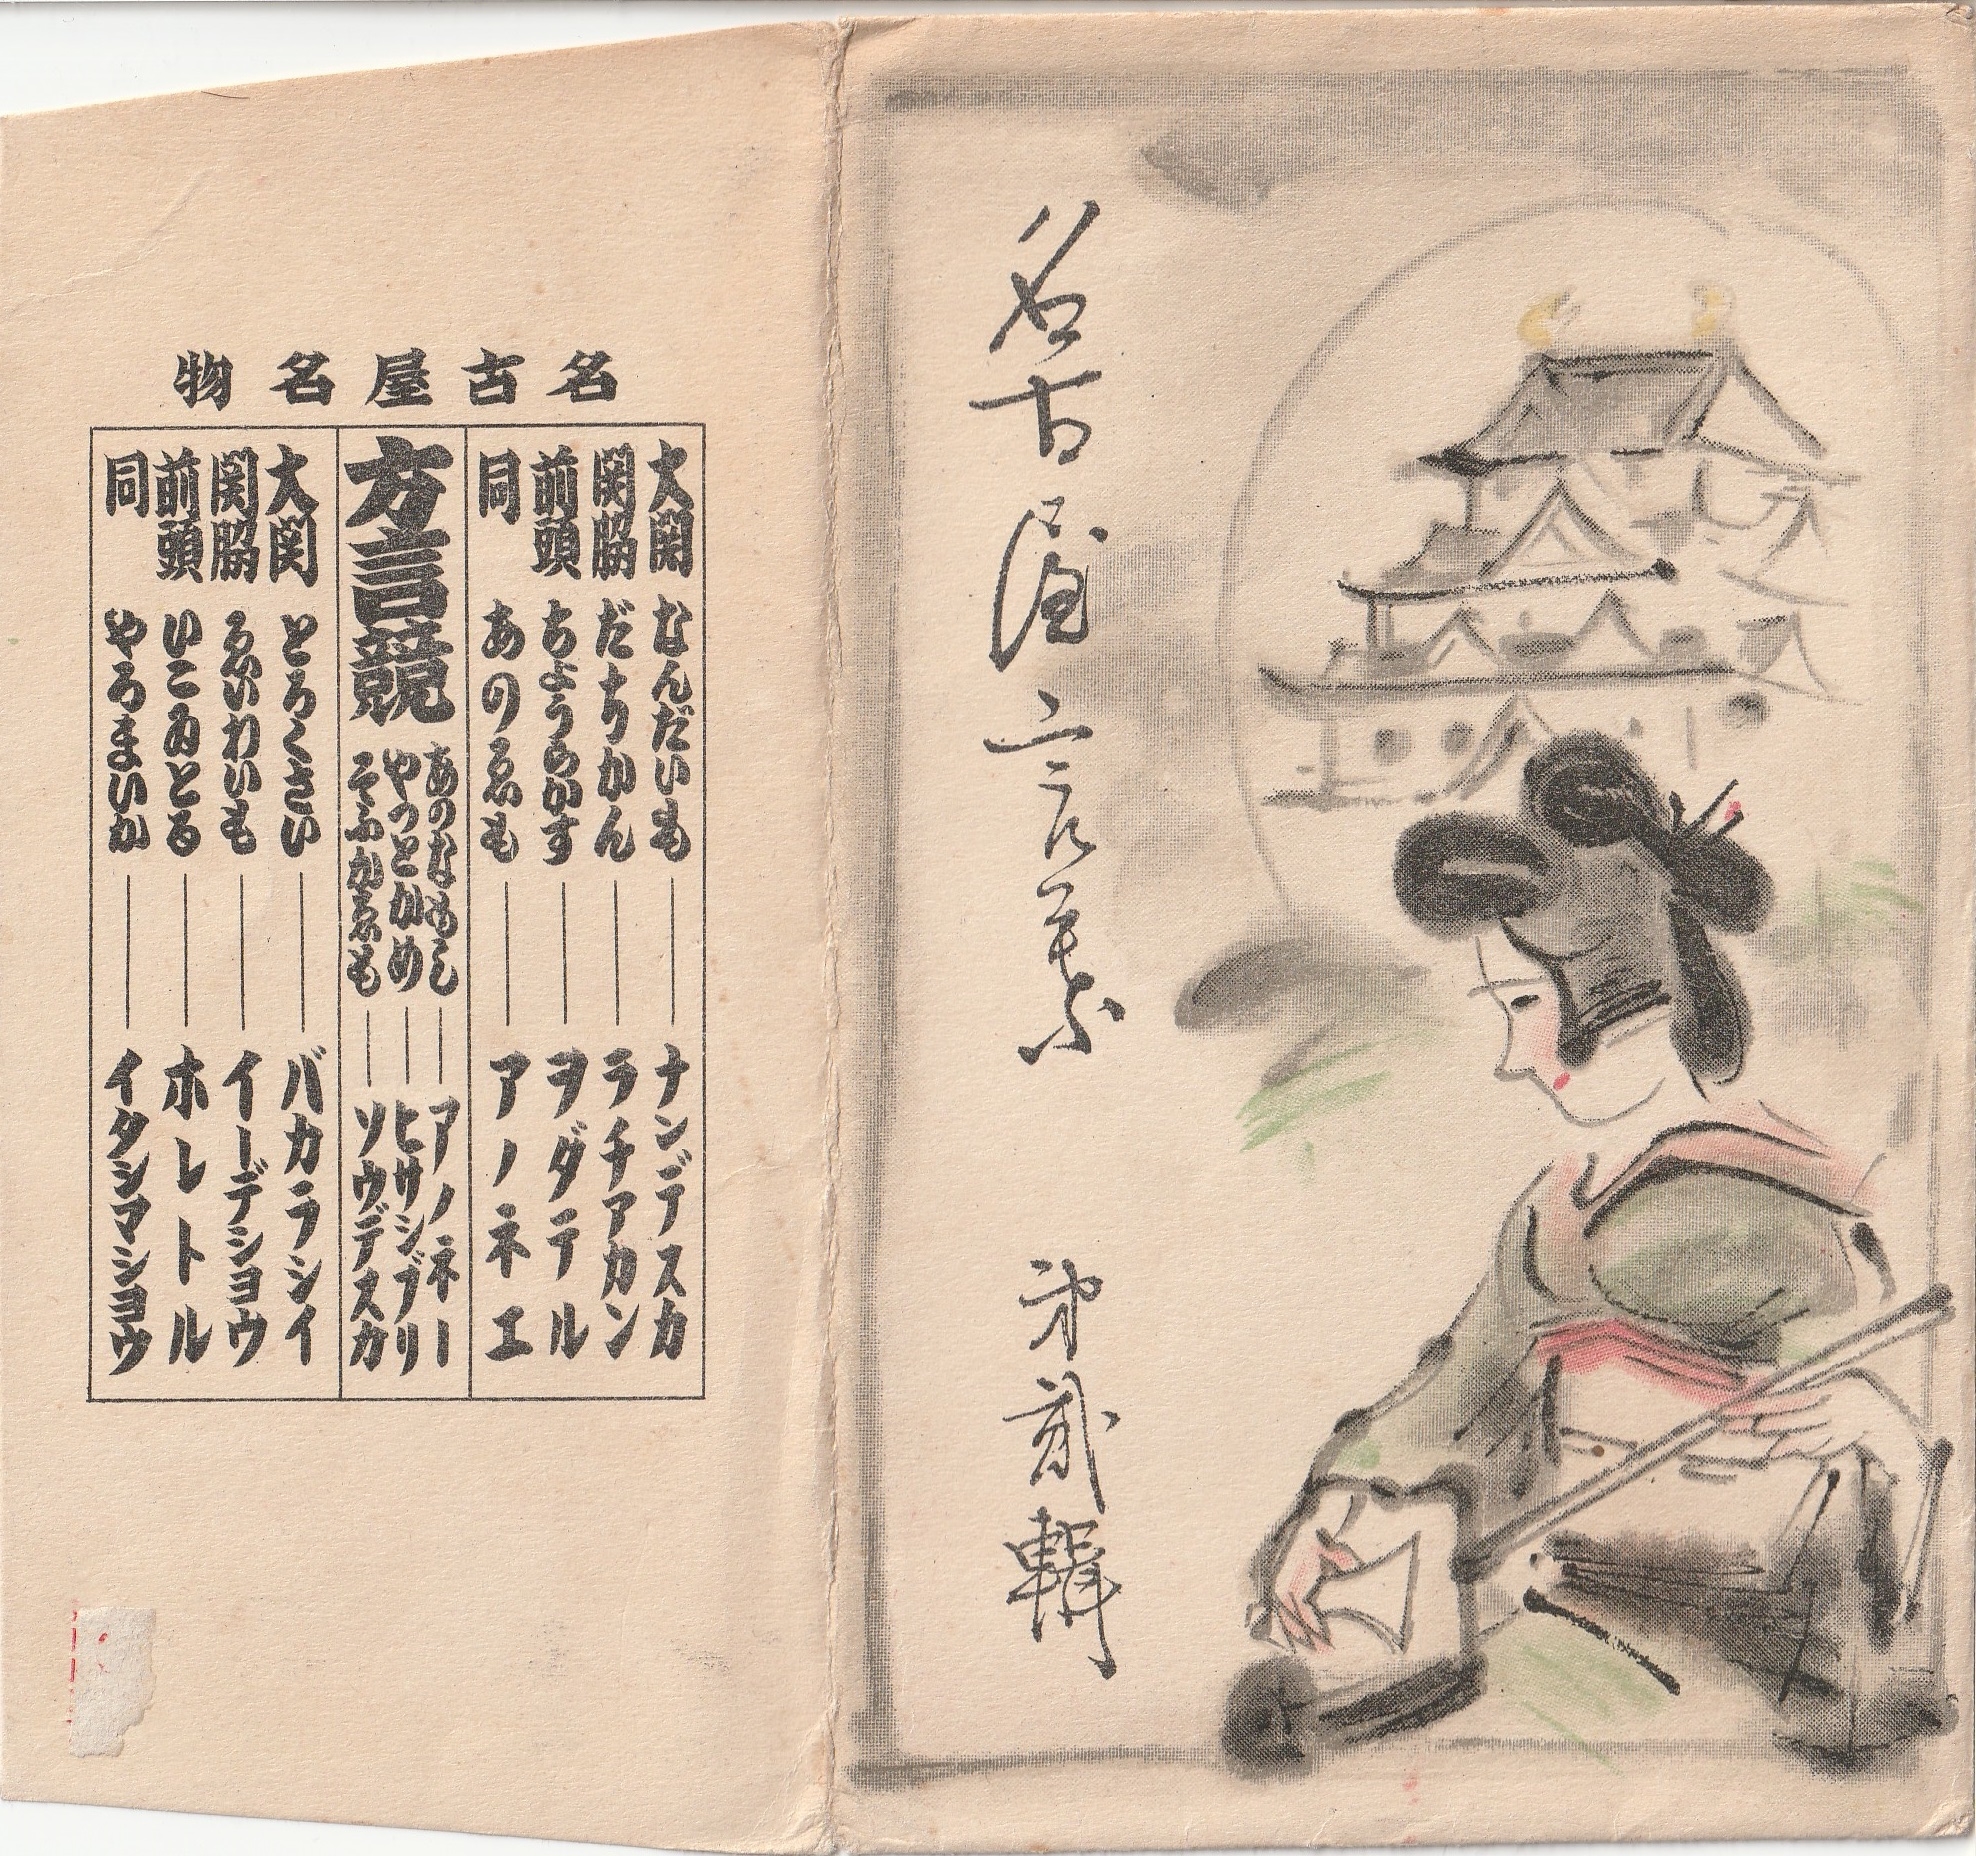 名古屋言葉　第貳輯
名古屋名物
大関　なんだいも――ナンデスカ
関脇　だちかん――ラチアカン
前頭　ちょうらかす――ヲダテル
同　あのゑも――アノネエ
方言競
あのなもし――アノネー
やっとかめ――ヒサシブリ
そふかゑも――ソウデスカ
大関　とろくさい――バカラシイ
関脇　ゑゝわいも――イーデショウ
前頭　いこゐとる――ホレトル
同　やろまいか――イタシマショウ